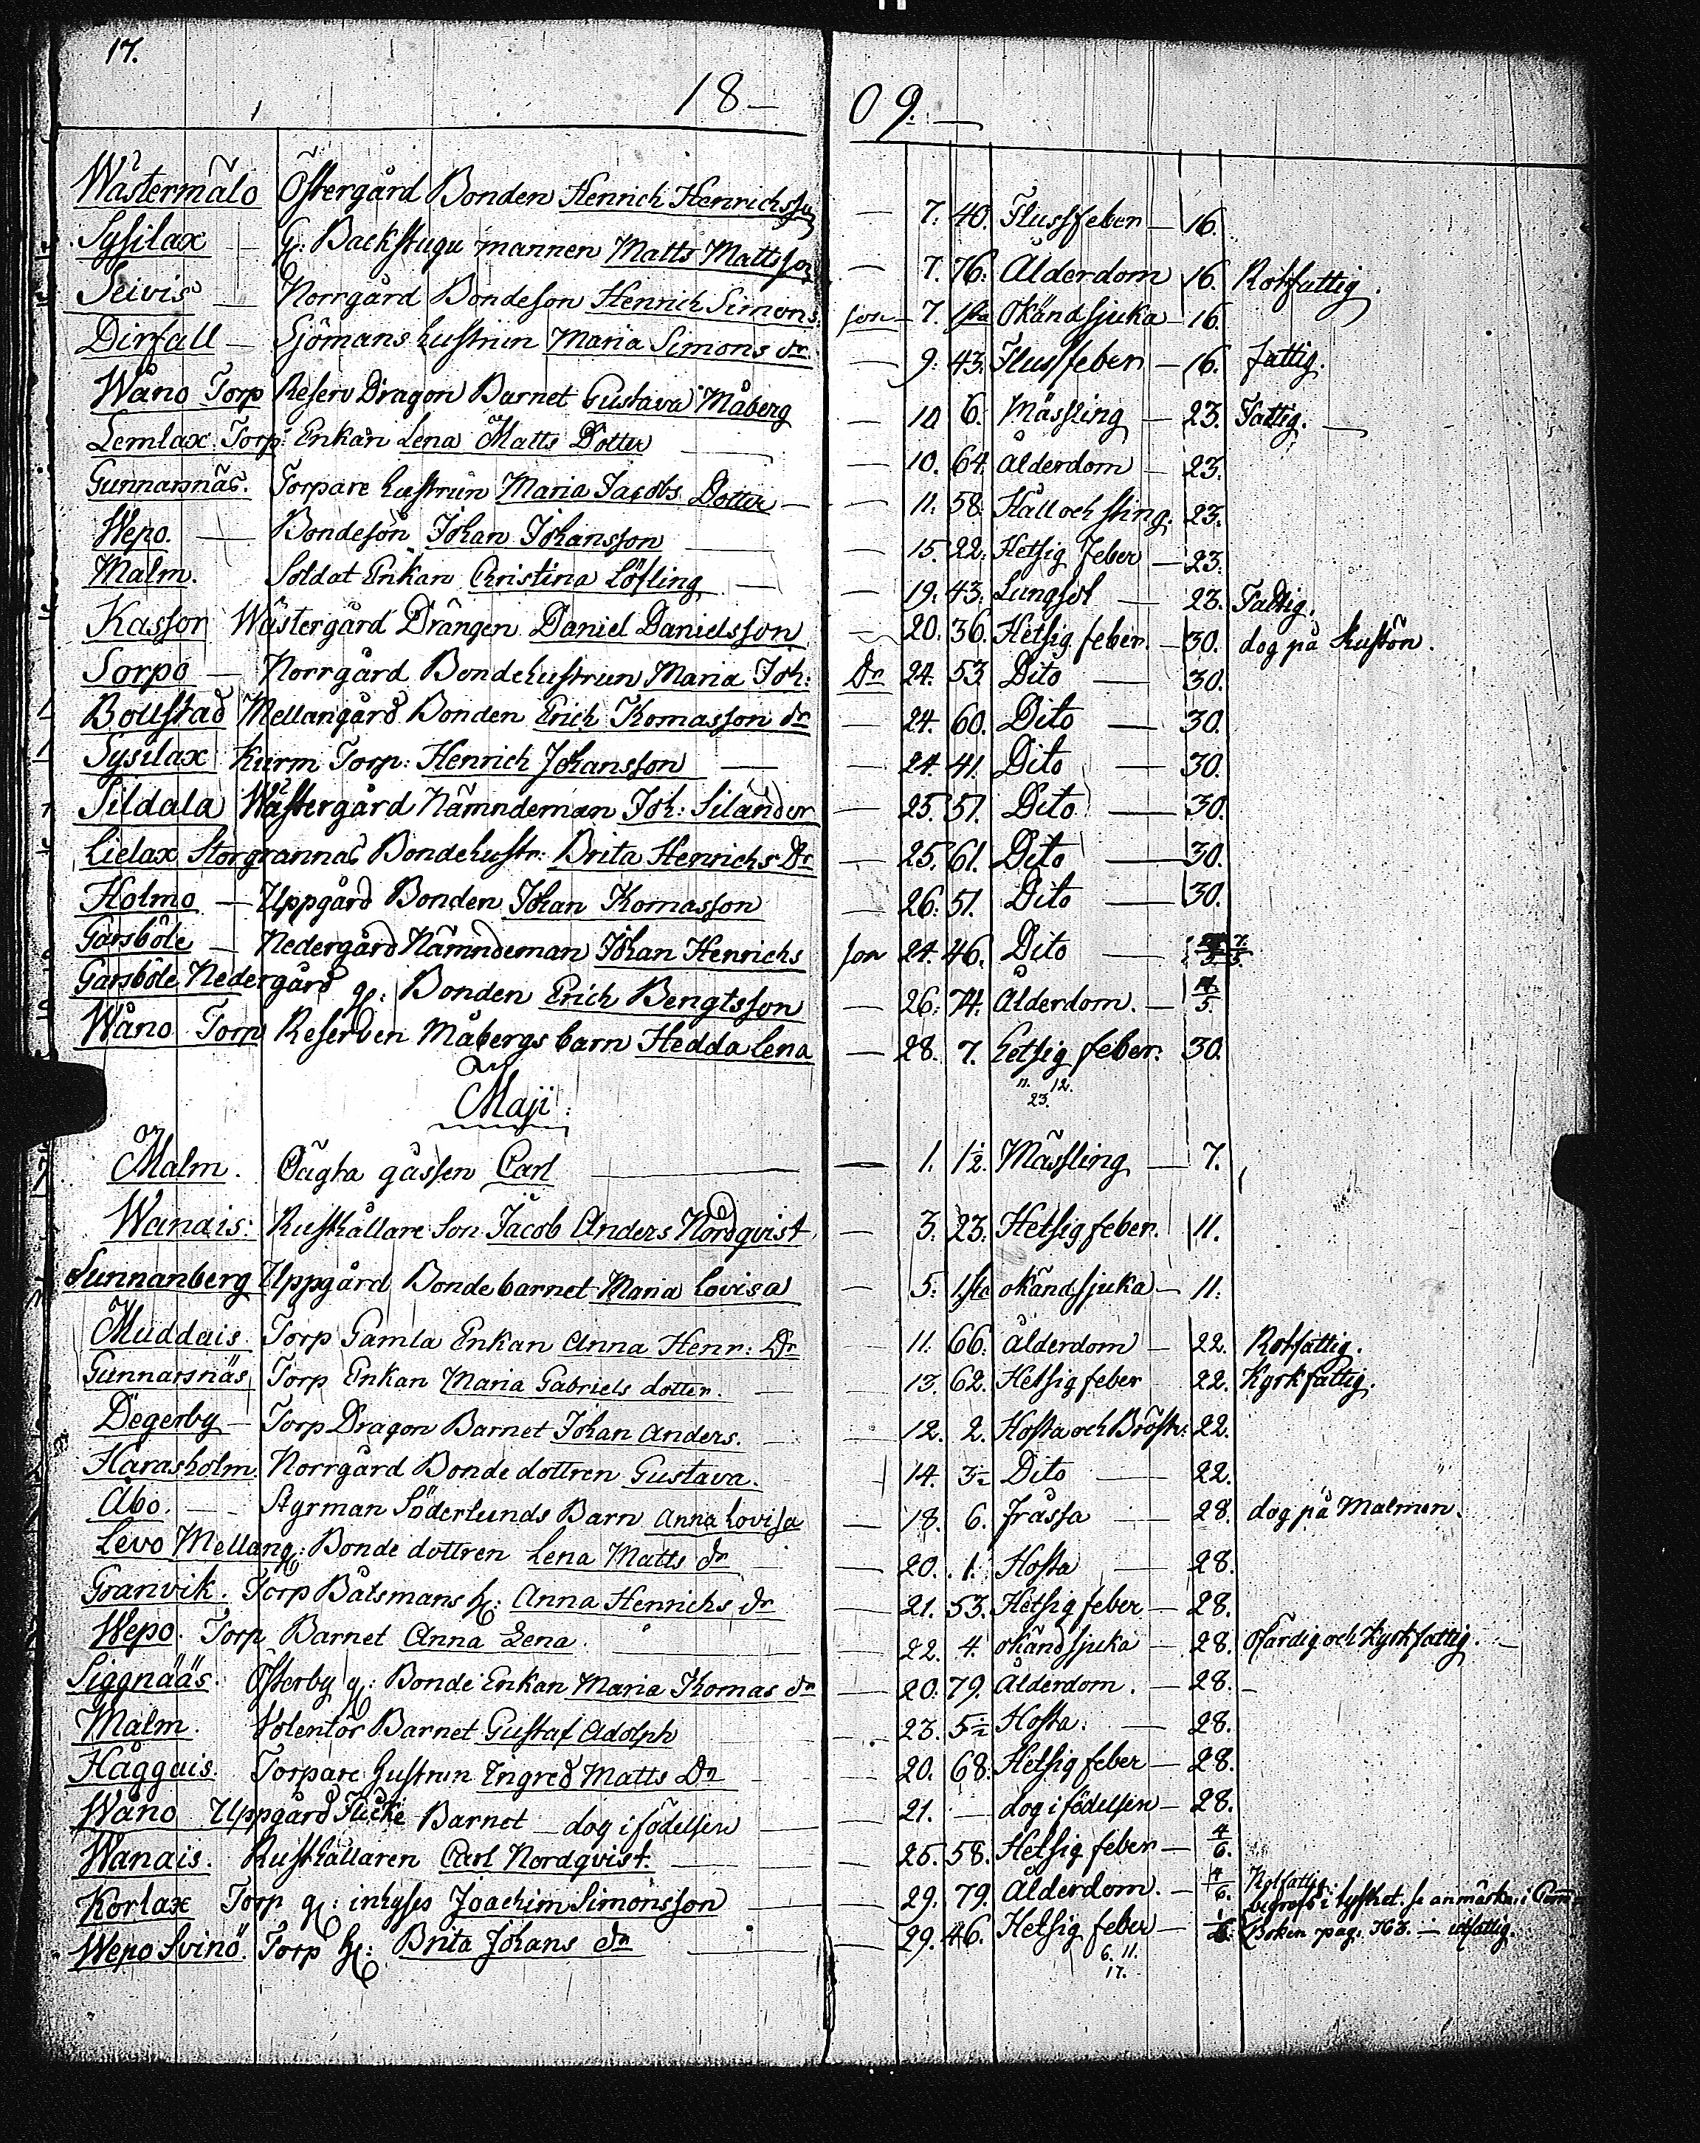 17.
18 — 09. —
Wästermälö Östergård Bonden Henrich Henrichsson — 7. 40. Flussfeber — 16.
Sysilax — g: Backstugu mannen Matts Mattsson — 7. 76. Ålderdom 16. Rotfattig.
Seivis — Norrgård Bondeson Henrich Simons: son — 7. Okänd sjuka — 16.
Dirfall — Sjömans hustrun Maria Simons dr — 9. 43. Flussfeber — 16. fattig.
Wäno Torp Reserv Dragon Barnet Gustava Måberg — 10 6. Mässling — 23. Fattig. —
Lemlax Torp: Enkan Lena Matts Dotter — 10. 64. Ålderdom — 23.
Gunnarsnäs. Torpare hustrun Maria Jacobs Dotter — 11. 58. Håll och sting. 23.
Wepo. — Bondeson Johan Johansson — 15. 22. Hetsig feber — 23.
Malm. Soldat Enkan Christina Löfling — 19. 43. Lungsot — 23. Fattig.
Kassor Wästergård Drängen Daniel Danielsson — 20. 36. Hetsig feber. — 30. dog på Kustön.
Sorpo — Norrgård Bondehustrun Maria Joh: Dr 24. 53. Dito — 30.
Bollstad Mellangård Bonden Erich Thomasson dr — 24. 60. Dito — 30.
Sysilax Torp: Henrich Johansson — 24. 41. Dito — 30.
Sildala Wästergård Nämndeman Joh: Silander — 25. 57. Dito — 30.
Lielax Storgrannas Bondehustr: Brita Henrichs Dr — 25. 61. Dito — 30.
Holmo — Uppgård Bonden Johan Thomasson — 26. 51. Dito — 30.
Garsböle — Nedergård Nämndeman Johan Henrichs son 24. 46. Dito — 7/5.
Garsböle Nedergård g: Bonden Erich Bengtsson — 26. 74. Ålderdom. — /5.
Wäno Torp Reserven Måbergs barn Hedda Lena — 28. 7. hetsig feber. 30.
11. 12.
23.
Maji:
Malm. Oägta gåssen Carl — 1. 1½. Mässling — 7.
Wanais: Rusthållare Son Jacob Anders Nordqvist — 3. 23. Hetsig feber. 11.
Sunnanberg Uppgård Bonde barnet Maria Lovisa — 5. okänd sjuka — 11.
Muddais Torp Gamla Enkan Anna Henr: Dr — 11. 66. ålderdom — 22. Rotfattig.
Gunnarsnäs Torp Enkan Maria Gabriels dotter. — 13. 62. Hetsig feber 22. Kyrkfattig.
Degerby — Torp Dragon Barnet Johan Anders. — 12. 2. Hosta och Bröstv: 22.
Harasholm Norrgård Bonde dottren Gustava. — 14. 3½ Dito — 22.
Åbo. — Styrman Söderlunds Barn Anna Lovisa — 18. 6. frässa — 28. dog på Malmen.
Levo Mellang: Bonde dottren Lena Matts dr — 20. 1. Hosta — 28.
Granvik. Torp Båtsmans h: Anna Henrichs dr — 21. 53. Hetsig feber — 28.
Wepo. Torp Barnet Anna Lena. — 22. 4. okänd sjuka — 28. ofärdig och Kyrkfattig. —
Siggnääs. Österby g: Bonde Enkan Maria Thomas dr — 20. 79. Ålderdom. — 28.
Malm. Volentör Barnet Gustaf Adolph — 23. 5½ Hosta. — 28.
Häggais. Torpare hustrun Ingred Matts Dr — 20. 68. Hetsig feber — 28.
Wäno Uppgård Flicke Barnet — dog i födelsen — 21. — dog i födelsen — 28.
Wanais. Rusthållaren Carl Nordqvist. — 26. 58. Hetsig feber — 4/6.
Korlax Torp g: inhyses Joachim Simonsson — 29. 79. Ålderdom. — 4/6. Rotfattig:
begrofs i tysthet. se anmärkn: i
Wepo Svinö. Torp h: Brita Johans dr — 29. 46. Hetsig feber — Boken pag. 363. —
6. 11.
17.